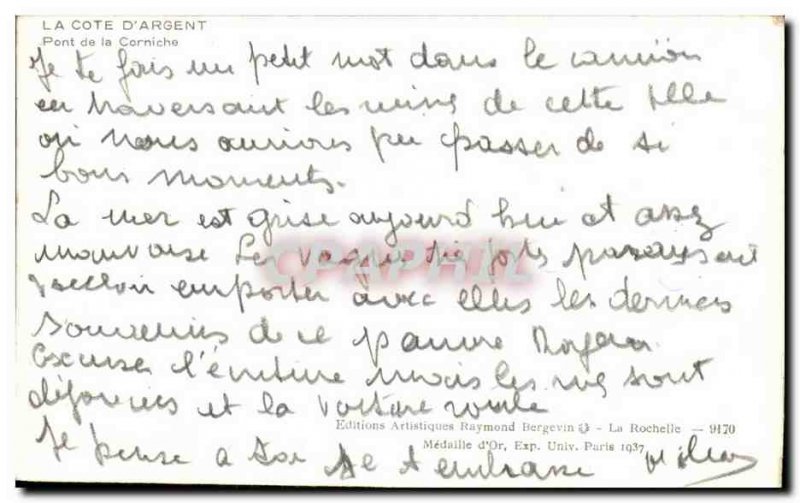 LA COTE D'ARGENT
Pont de la Corniche
Je te fais un petit mot dans le camion
en traversant les ruines de cette ville
où nous aurions pu passer de si
bons moments.
La mer est grise aujourd'hui et assez
mauvaise Les vagues très fortes paraissent
vouloir emporter avec elles les derniers
souvenirs de ce pauvre Royan
Excuse l'écriture mais les rues sont
défoncées et la voiture roule
Editions Artistiques Raymond Bergevin - La Rochelle - 9170
Médaille d'Or, Exp. Univ. Paris 1937
Je pense a toi Je t embrasse
CPAPHIL